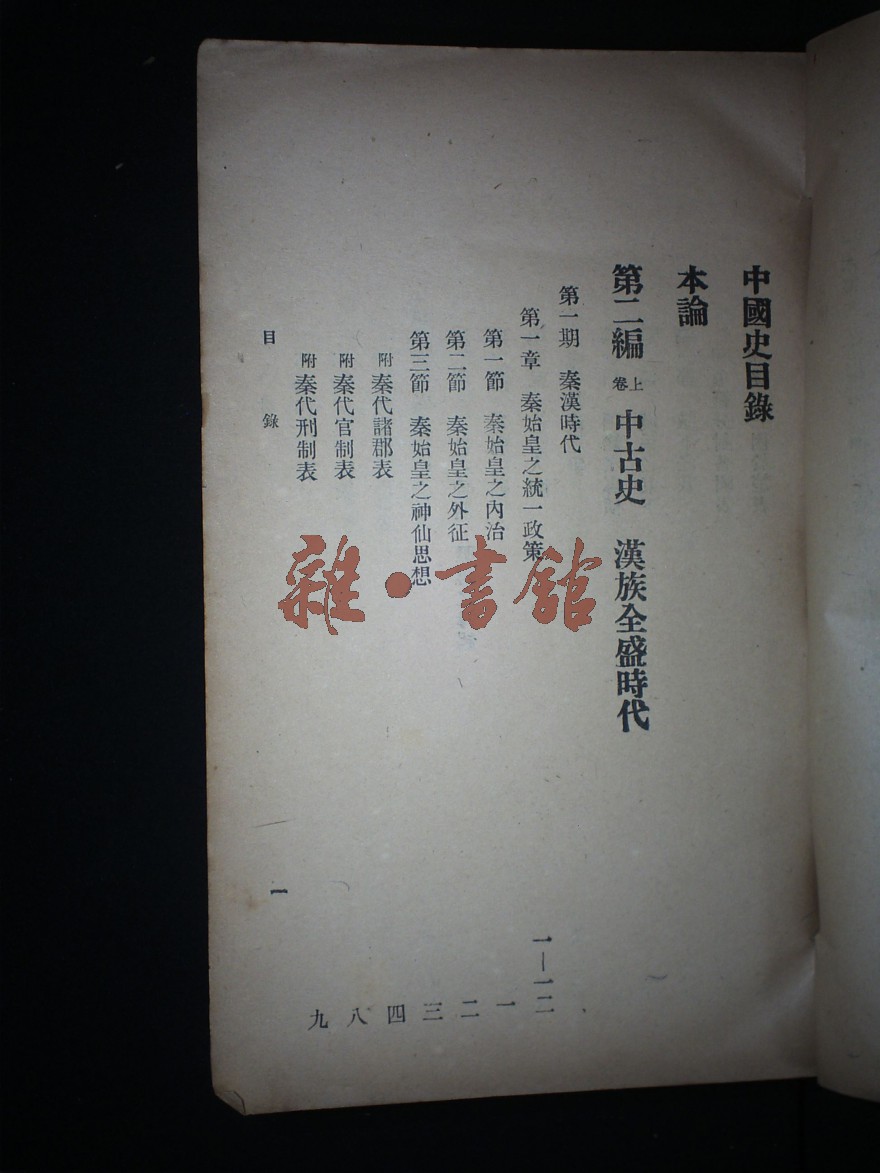 中國史目錄
本論
第二編 上卷 中古史 漢族全盛時代
第一期 秦漢時代
第一章 秦始皇之統一政策 一—一二
第一節 秦始皇之內治 一
第二節 秦始皇之外征 二
第三節 秦始皇之神仙思想 三
附 秦代諸郡表 四
附 秦代官制表 八
附 秦代刑制表 九
目錄 一
雜·書館